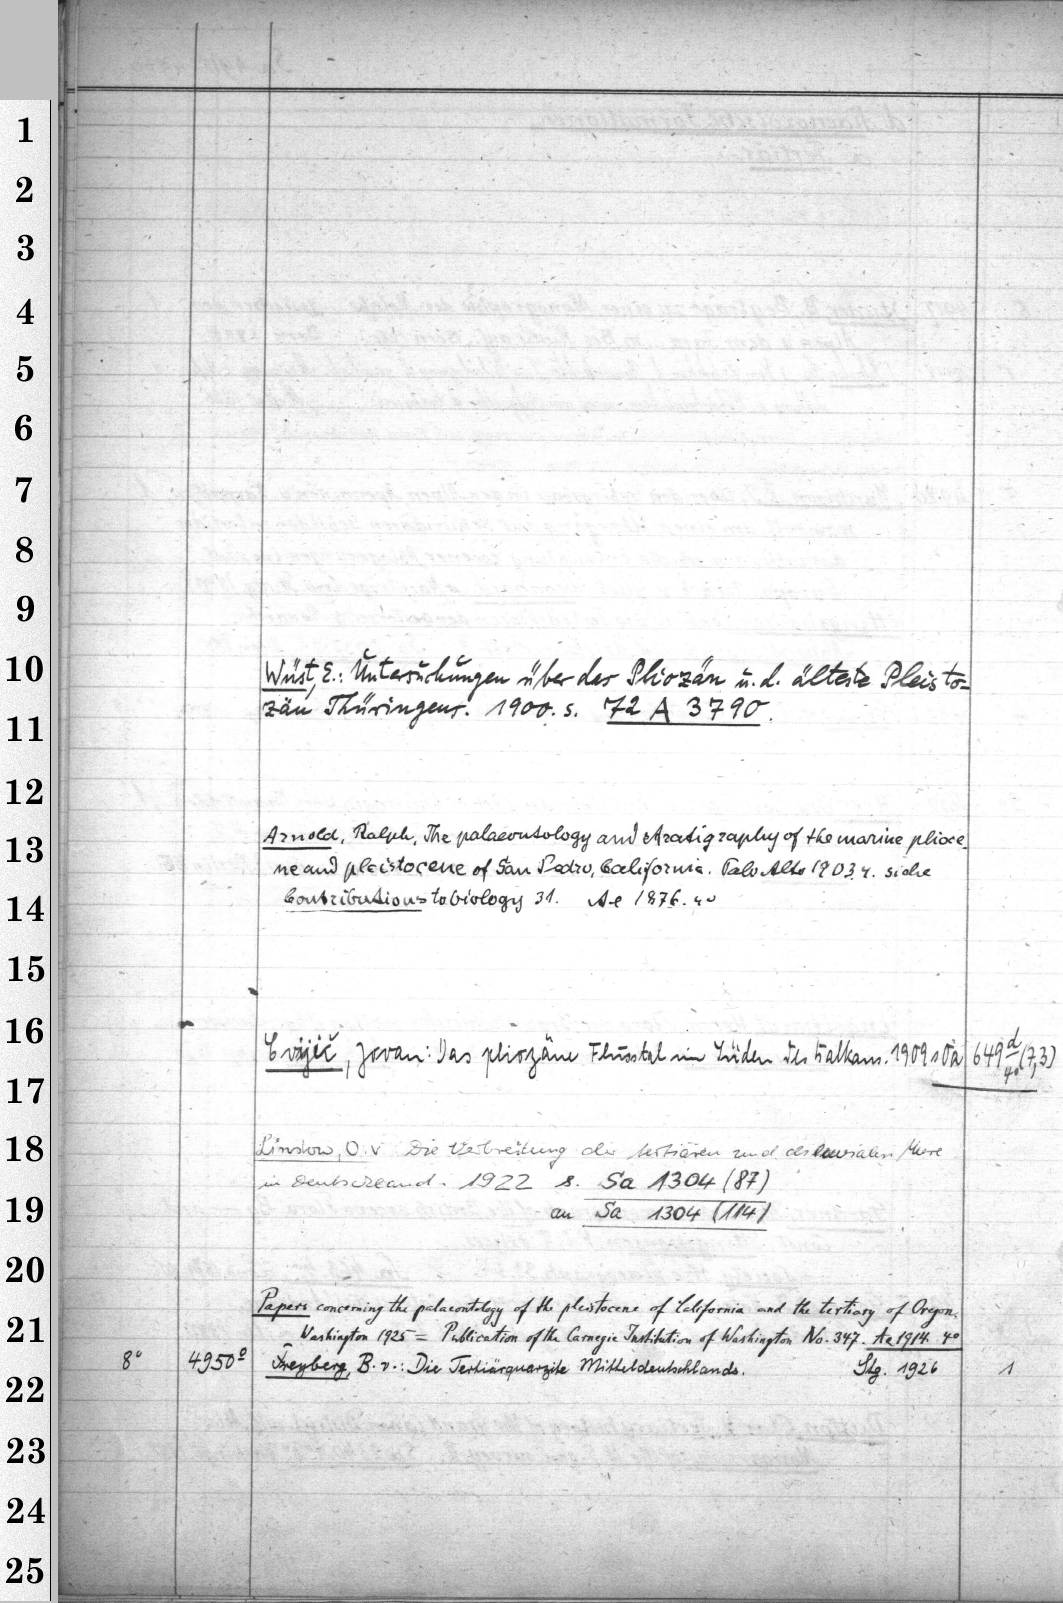 1
2
3
4
5
6
7
8
9
10
Wüst, E.: Untersuchungen über das Pliozän u. d. älteste Pleisto-
zän Thüringens. 1900. s. 72 A 3790.
11
12
Arnold, Ralph, The palaeontology and stratigraphy of the marine plioce-
13
ne and pleistocene of San Pedro, California. Palo Alto 1903. 4. siehe
Contributions to biology 31. Ae 1876. 4°
14
15
16
Cvijić, Jovan: Das pliozäne Flusstal im Süden des Balkans. 1909 s Oa 649 d/4° (7,3)
17
18
Linstow, O. v. Die Verbreitung der tertiären und diluvialen Meere
in Deutschland. 1922 s. Sa 1304 (87)
19
an Sa 1304 (114)
20
Papers concerning the palaeontology of the pleistocene of California and the tertiary of Oregon.
21
Washington 1925 = Publication of the Carnegie Institution of Washington No. 347. Ae 1914. 4°
8° 4950e Freyberg, B. v.: Die Tertiärquarzite Mitteldeutschlands. Stg. 1926 1
22
23
24
25